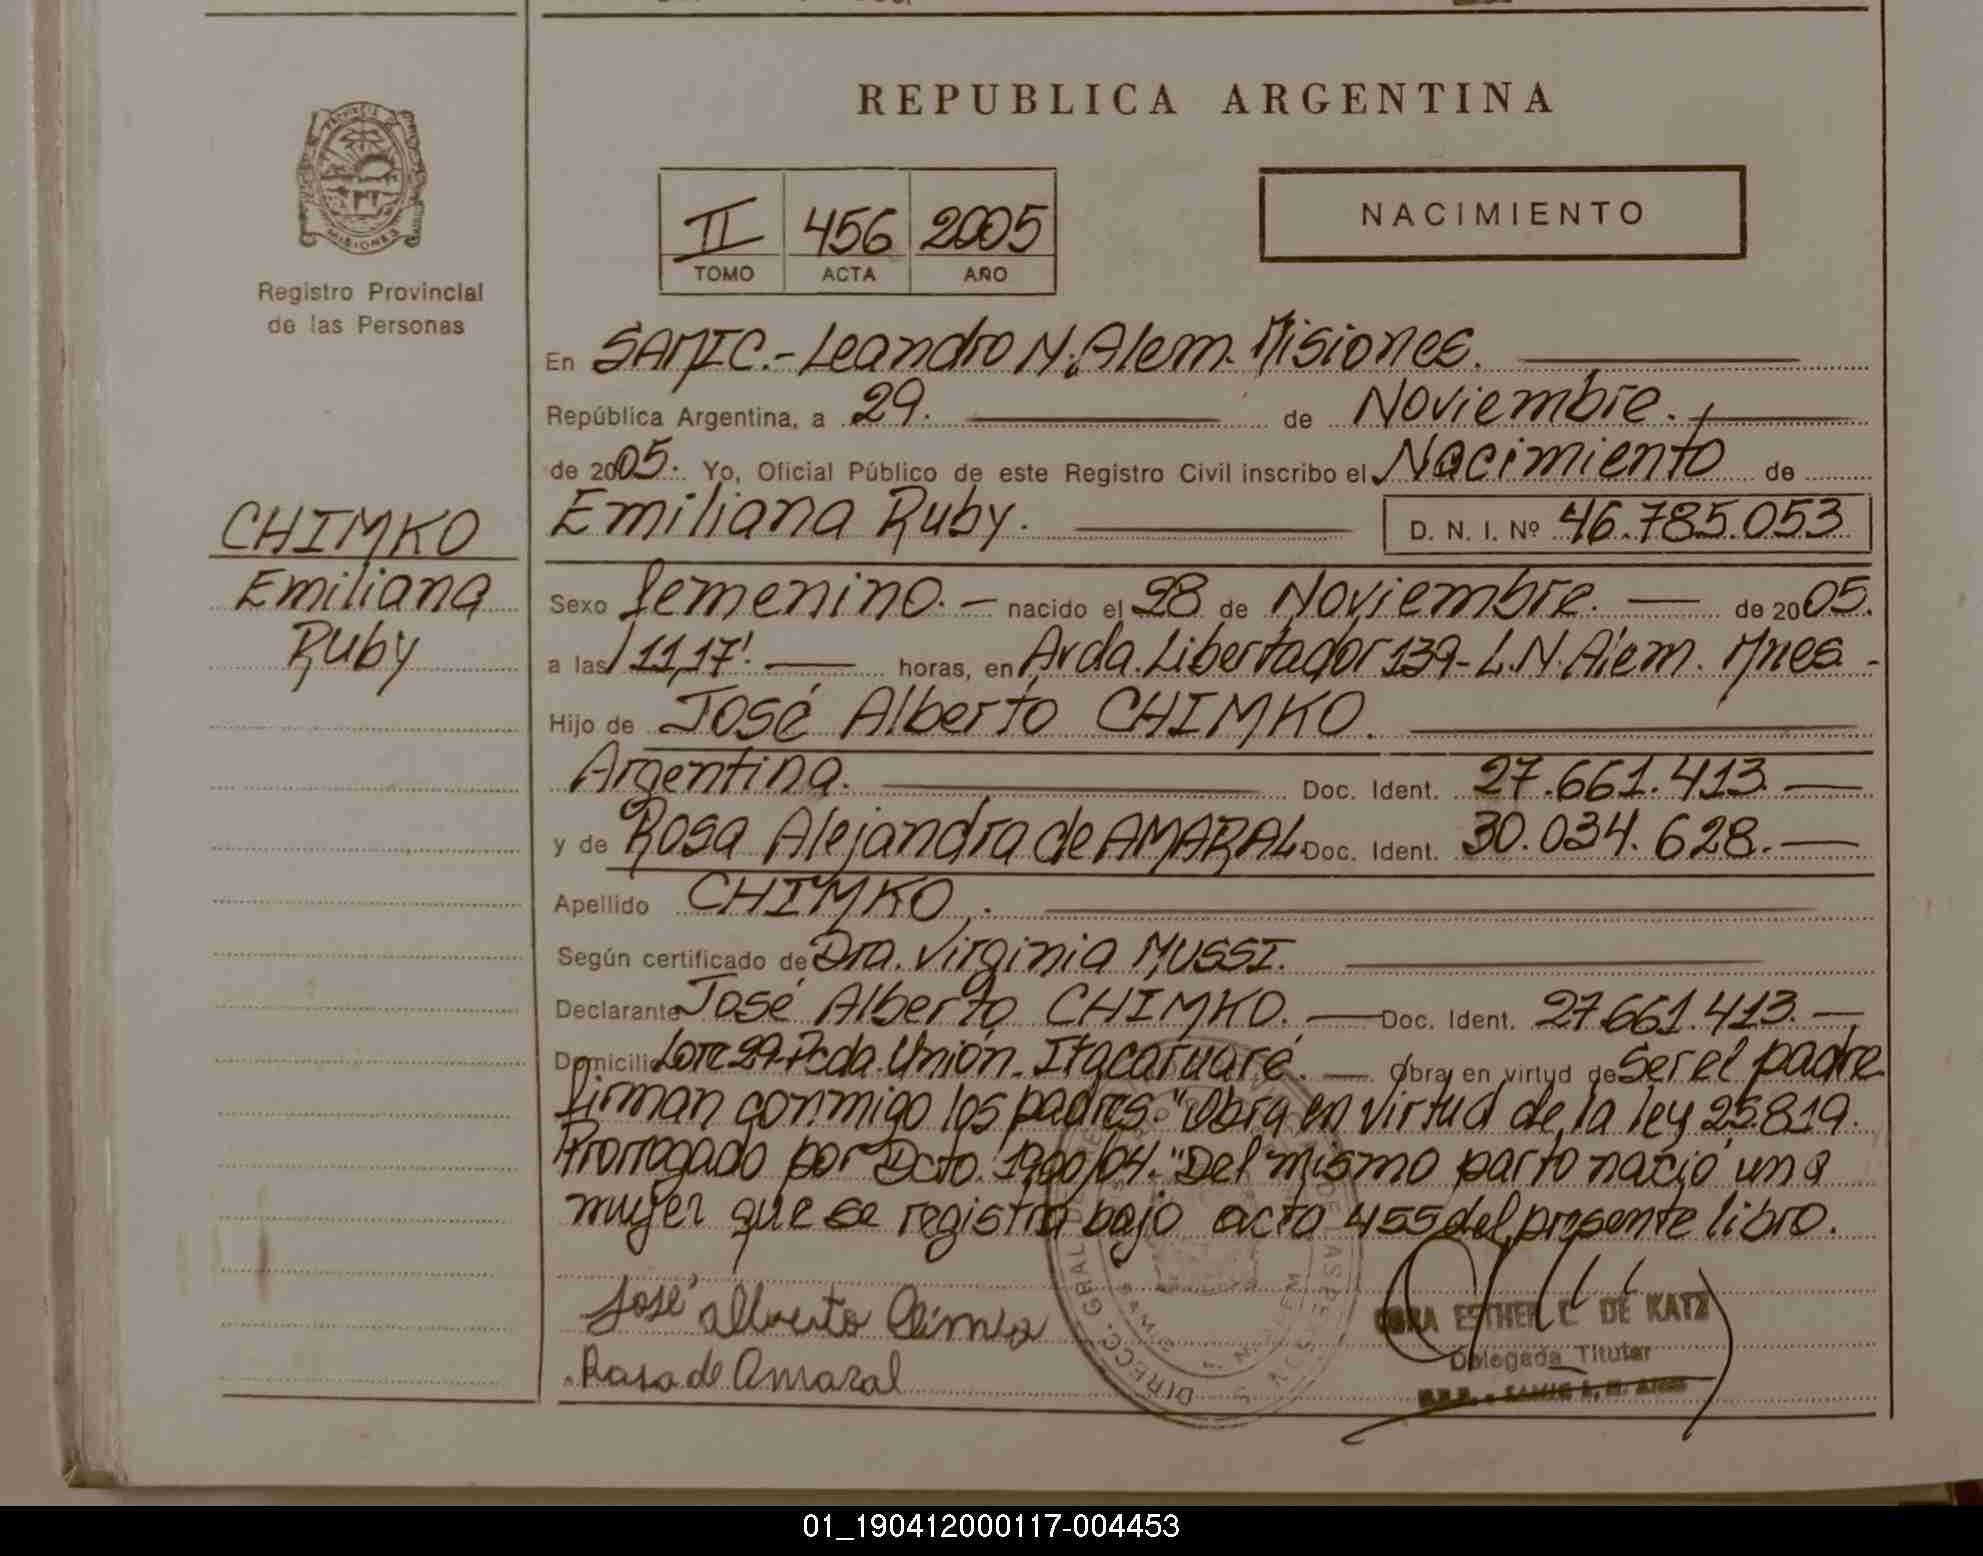 REPUBLICA ARGENTINA
PROVINCIA
MISIONES
Registro Provincial
de las Personas
II 456 2005
TOMO ACTA AÑO
NACIMIENTO
En SAMIC.- Leandro N. Alem. Misiones.
República Argentina, a 29. de Noviembre.
de 2005. Yo, Oficial Público de este Registro Civil inscribo el Nacimiento de
CHIMKO
Emiliana
Ruby
Emiliana Ruby. D. N. I. Nº 46.785.053
Sexo femenino. — nacido el 28 de Noviembre. — de 2005.
a las 11,17'. — horas, en Avda. Libertador 139- L.N. Alem. Mnes. -
Hijo de José Alberto CHIMKO.
Argentina. Doc. Ident. 27.661.413. —
y de Rosa Alejandra de AMARAL. Doc. Ident. 30.034.628. —
Apellido CHIMKO.
Según certificado de Dra. Virginia MUSSI.
Declarante José Alberto CHIMKO. — Doc. Ident. 27.661.413. —
Domicilio Lote 29. Pcda. Unión. Itacaruaré. — Obra en virtud de Ser el padre
firman conmigo los padres. "Obra en virtud de la ley 25.819.
Prorrogado por Dcto. 1900/04. "Del mismo parto nació una
mujer que se registra bajo acta 455 del presente libro.
José Alberto
Rosa de Amaral
ESTHER C DE KATZ
Delegada Titular
DIRECC. GRAL
01_190412000117-004453